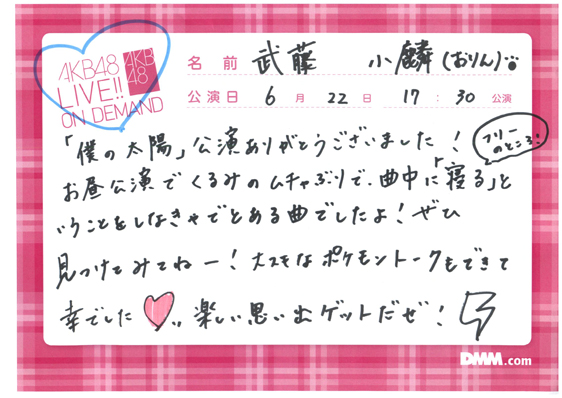 AKB48
LIVE!!
ON DEMAND
AKB
48
名前 武藤 小麟(おりん)
公演日 6月 22日 17:30 公演
「僕の太陽」公演ありがとうございました!
フリー
のところ!
お昼公演でくるみのムチャぶりで、曲中に「寝る」と
いうことをしなきゃでとある曲でしたよ!ぜひ
見つけてみてねー!大スキなポケモントークもできて
幸でした 楽しい思い出ゲットだぜ!
DMM.com